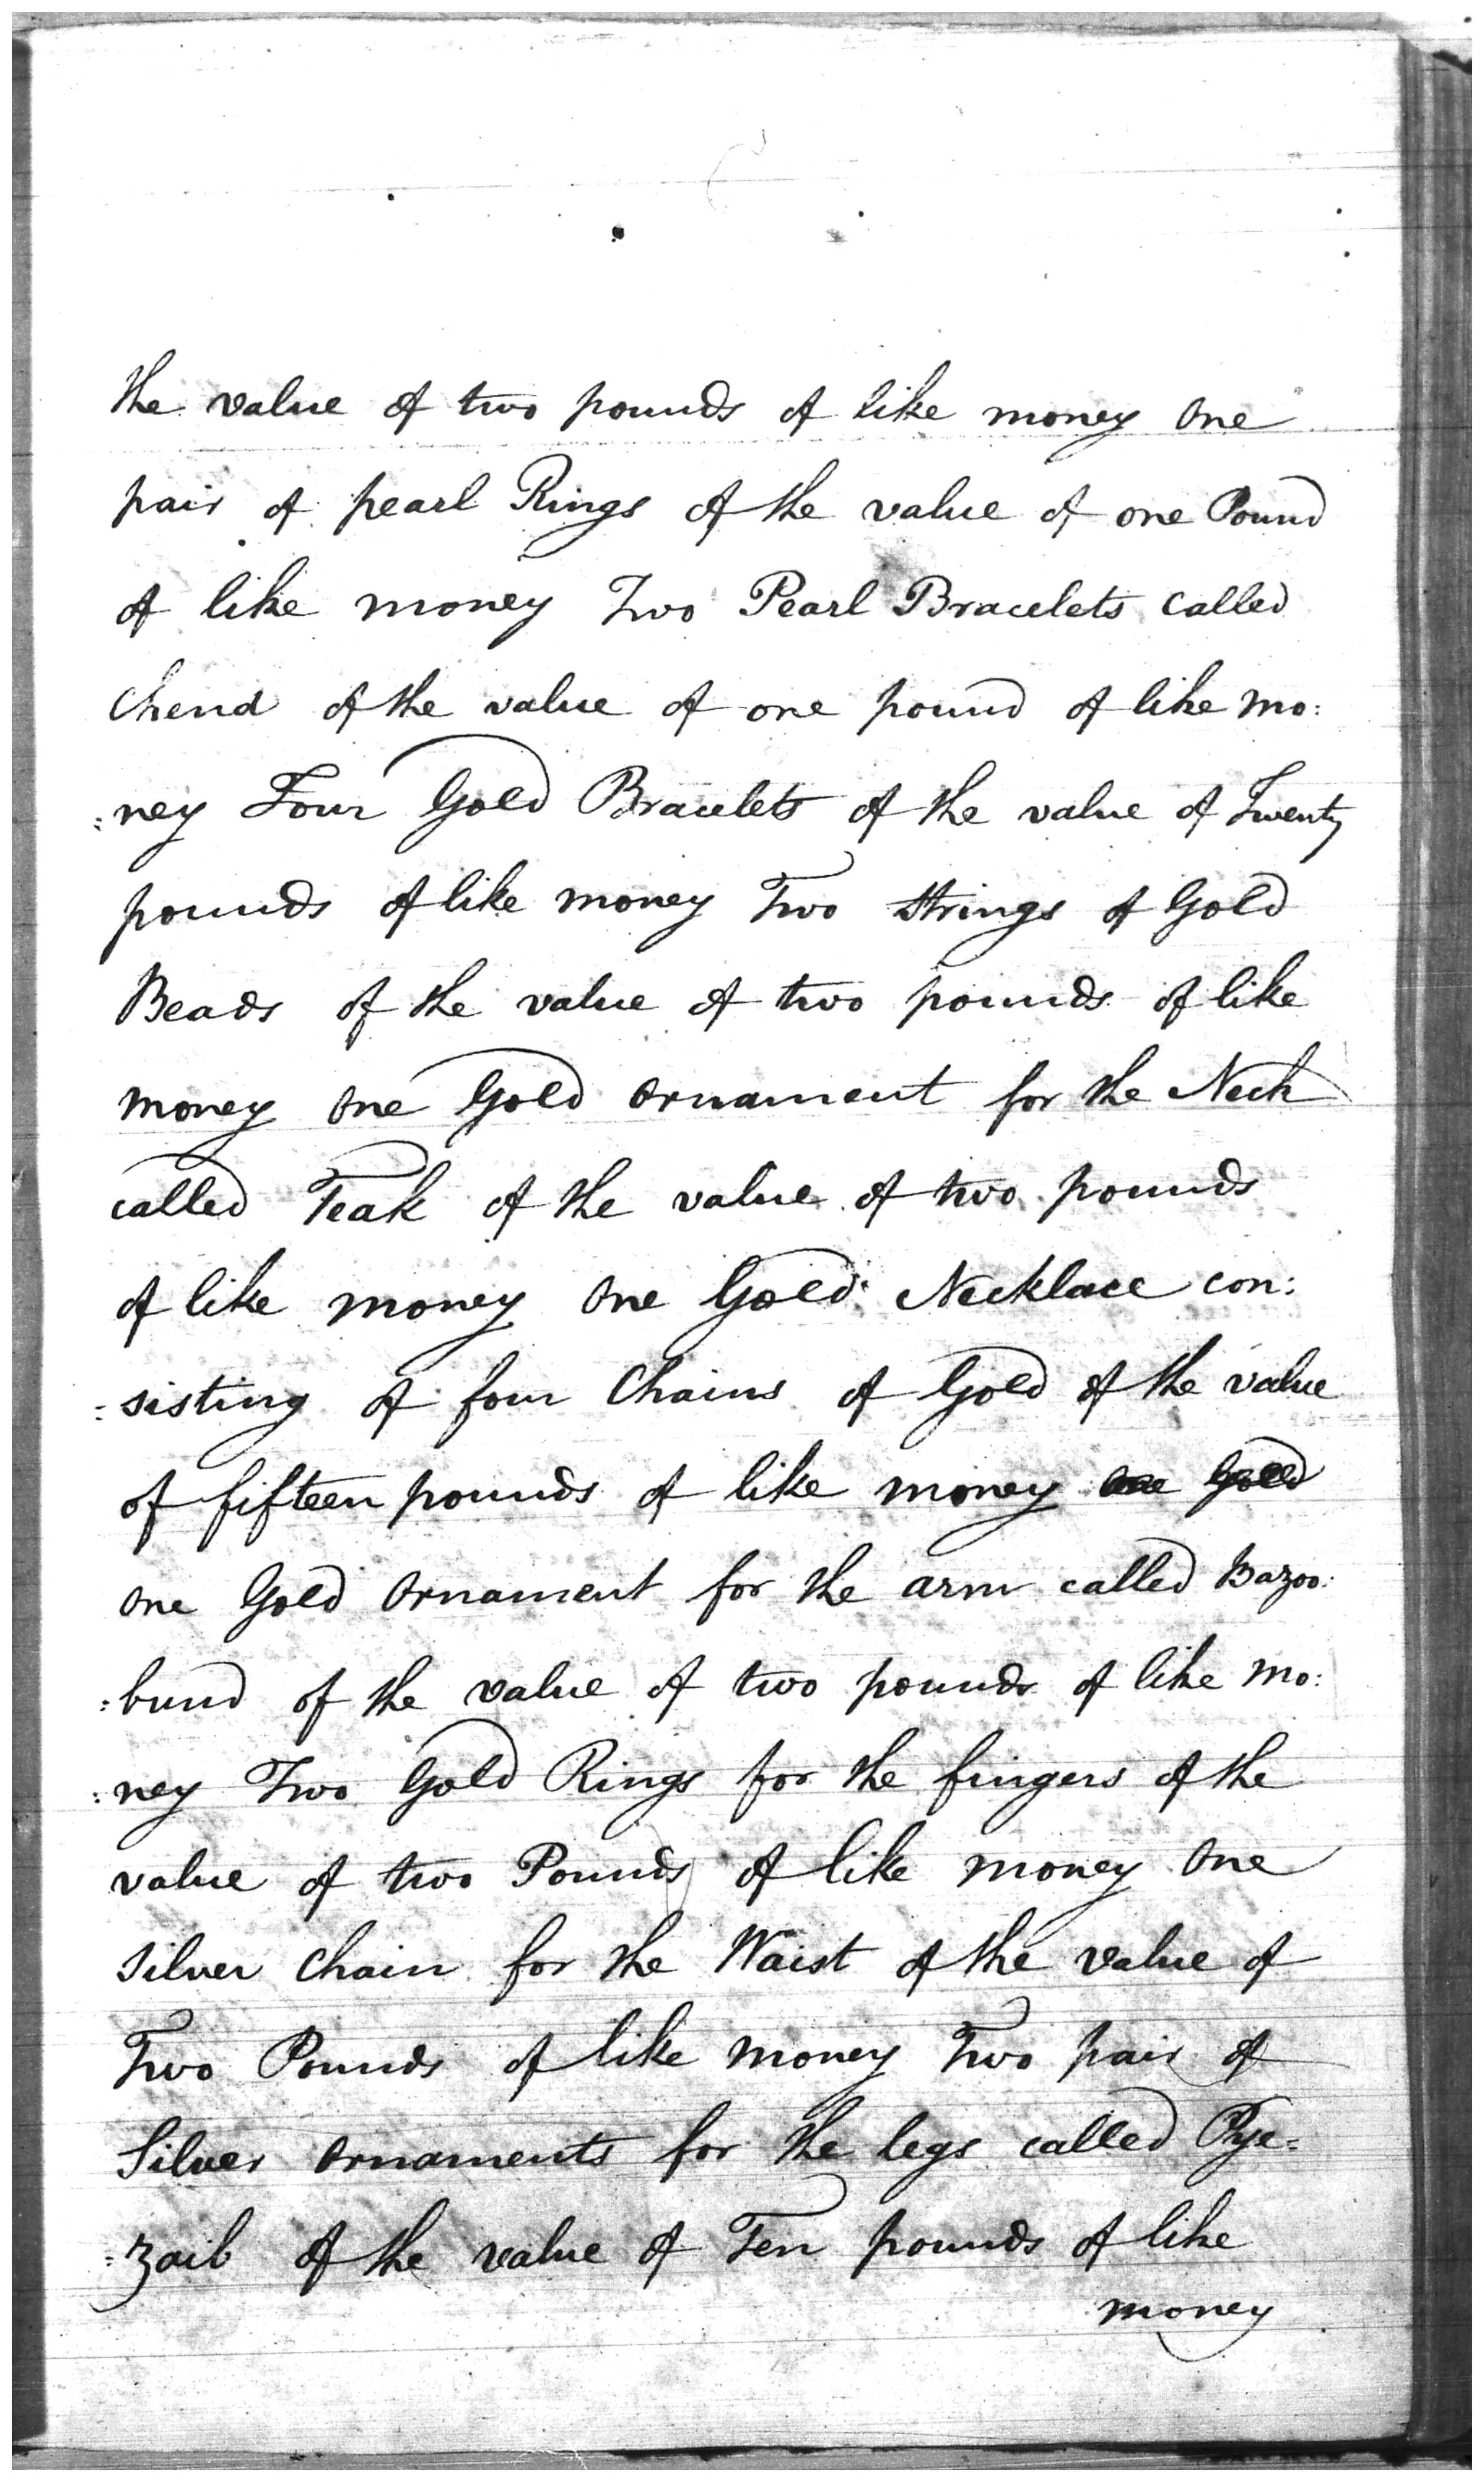 the value of two pounds of like money one
pair of pearl Rings of the value of one Pound
of like money Two Pearl Bracelets called
Chend of the value of one pound of like mo:
:ney Four Gold Bracelets of the value of Twenty
pounds of like money Two Strings of Gold
Beads of the value of two pounds of like
money one Gold ornament for the Neck
called Teak of the value of two pounds
of like money one Gold Necklace con:
:sisting of four Chains of Gold of the value
of fifteen pounds of like money one Gold
one Gold ornament for the arm called Bazoo:
:bund of the value of two pounds of like mo:
:ney Two Gold Rings for the fingers of the
value of two Pounds of like money one
silver Chain for the Waist of the value of
Two Pounds of like money Two pair of
Silver ornaments for the legs called Pye=
=zaib of the value of Ten pounds of like
money